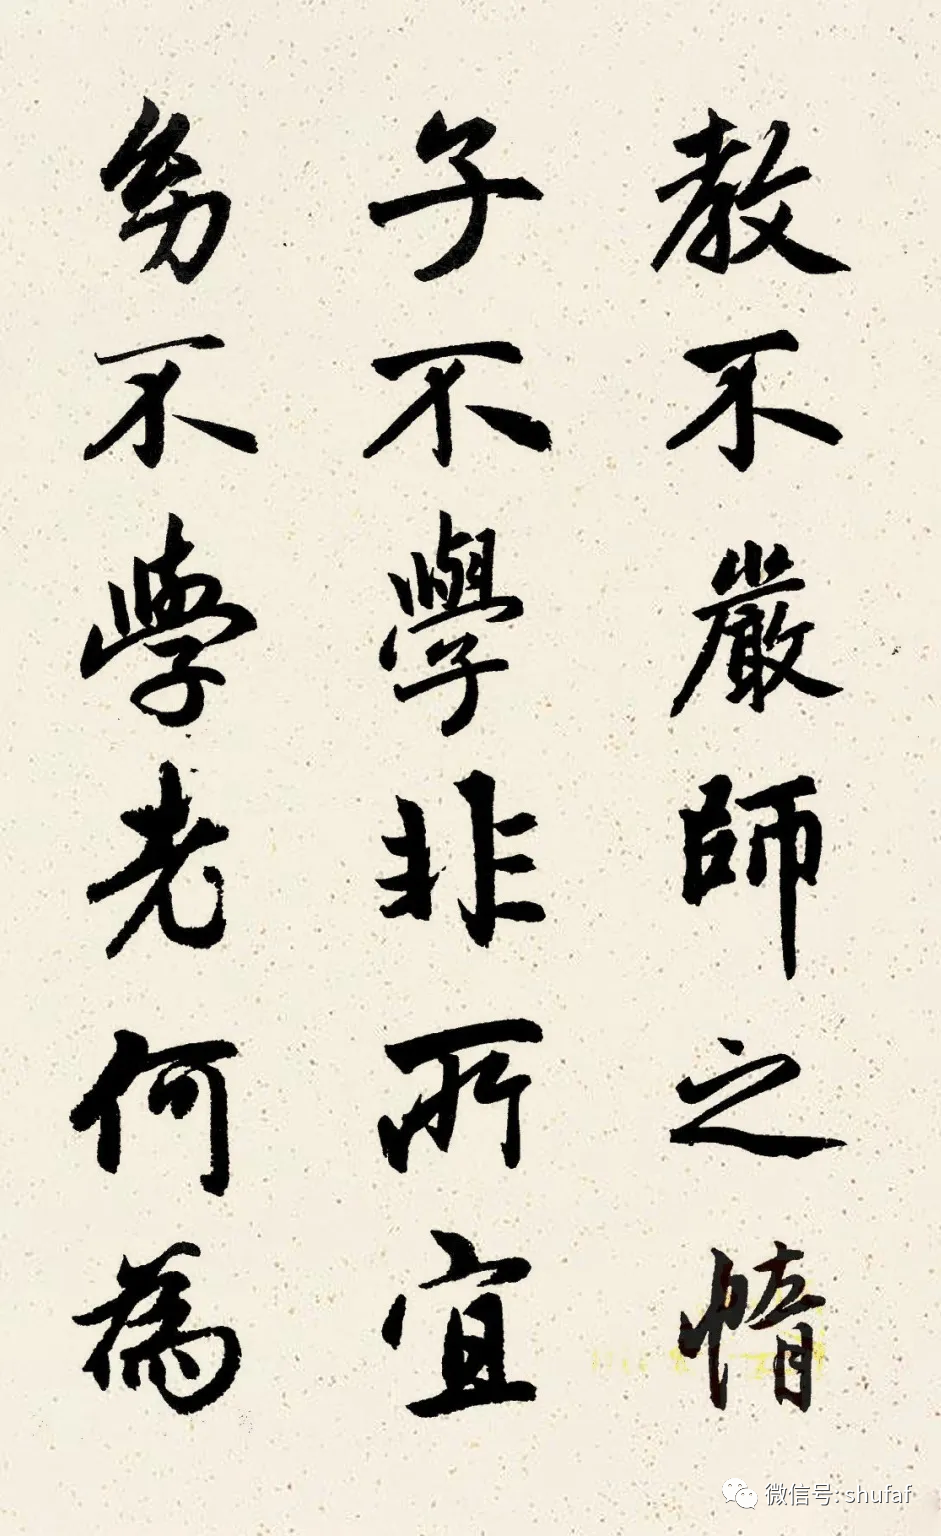 教不嚴師之惰
子不學非所宜
幼不學老何為
微信号: shufaf